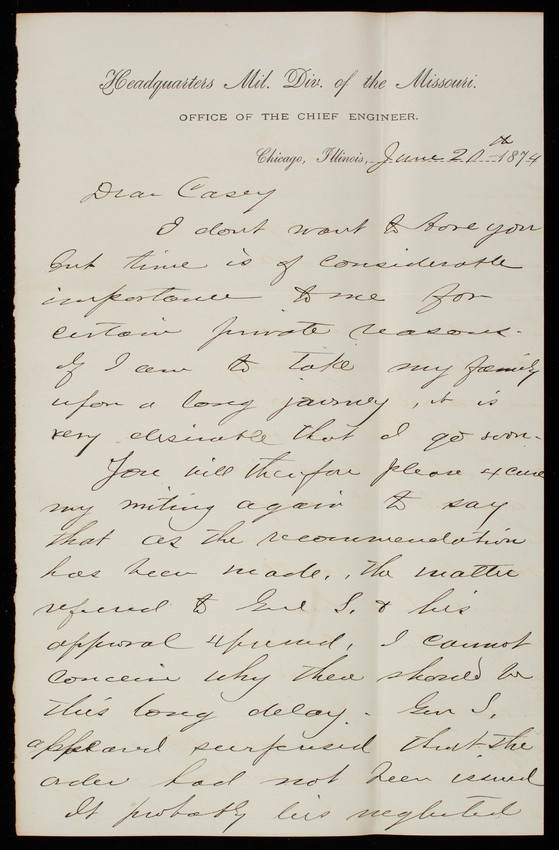 Headquarters Mil. Div. of the Missouri.
OFFICE OF THE CHIEF ENGINEER.
Chicago, Illinois, June 20th 1874
Dear Casey
I dont want to bore you
but time is of considerable
importance to me for
certain private reasons.
If I am to take my family
upon a long journey, it is
very desirable that I go soon.
You will therefore please excuse
my writing again to say
that as the recommendation
has been made, the matter
referred to Genl S. & his
approval expressed, I cannot
conceive why there should be
this long delay. Gen S.
appeared surprised that the
order had not been issued
It probably lies neglected